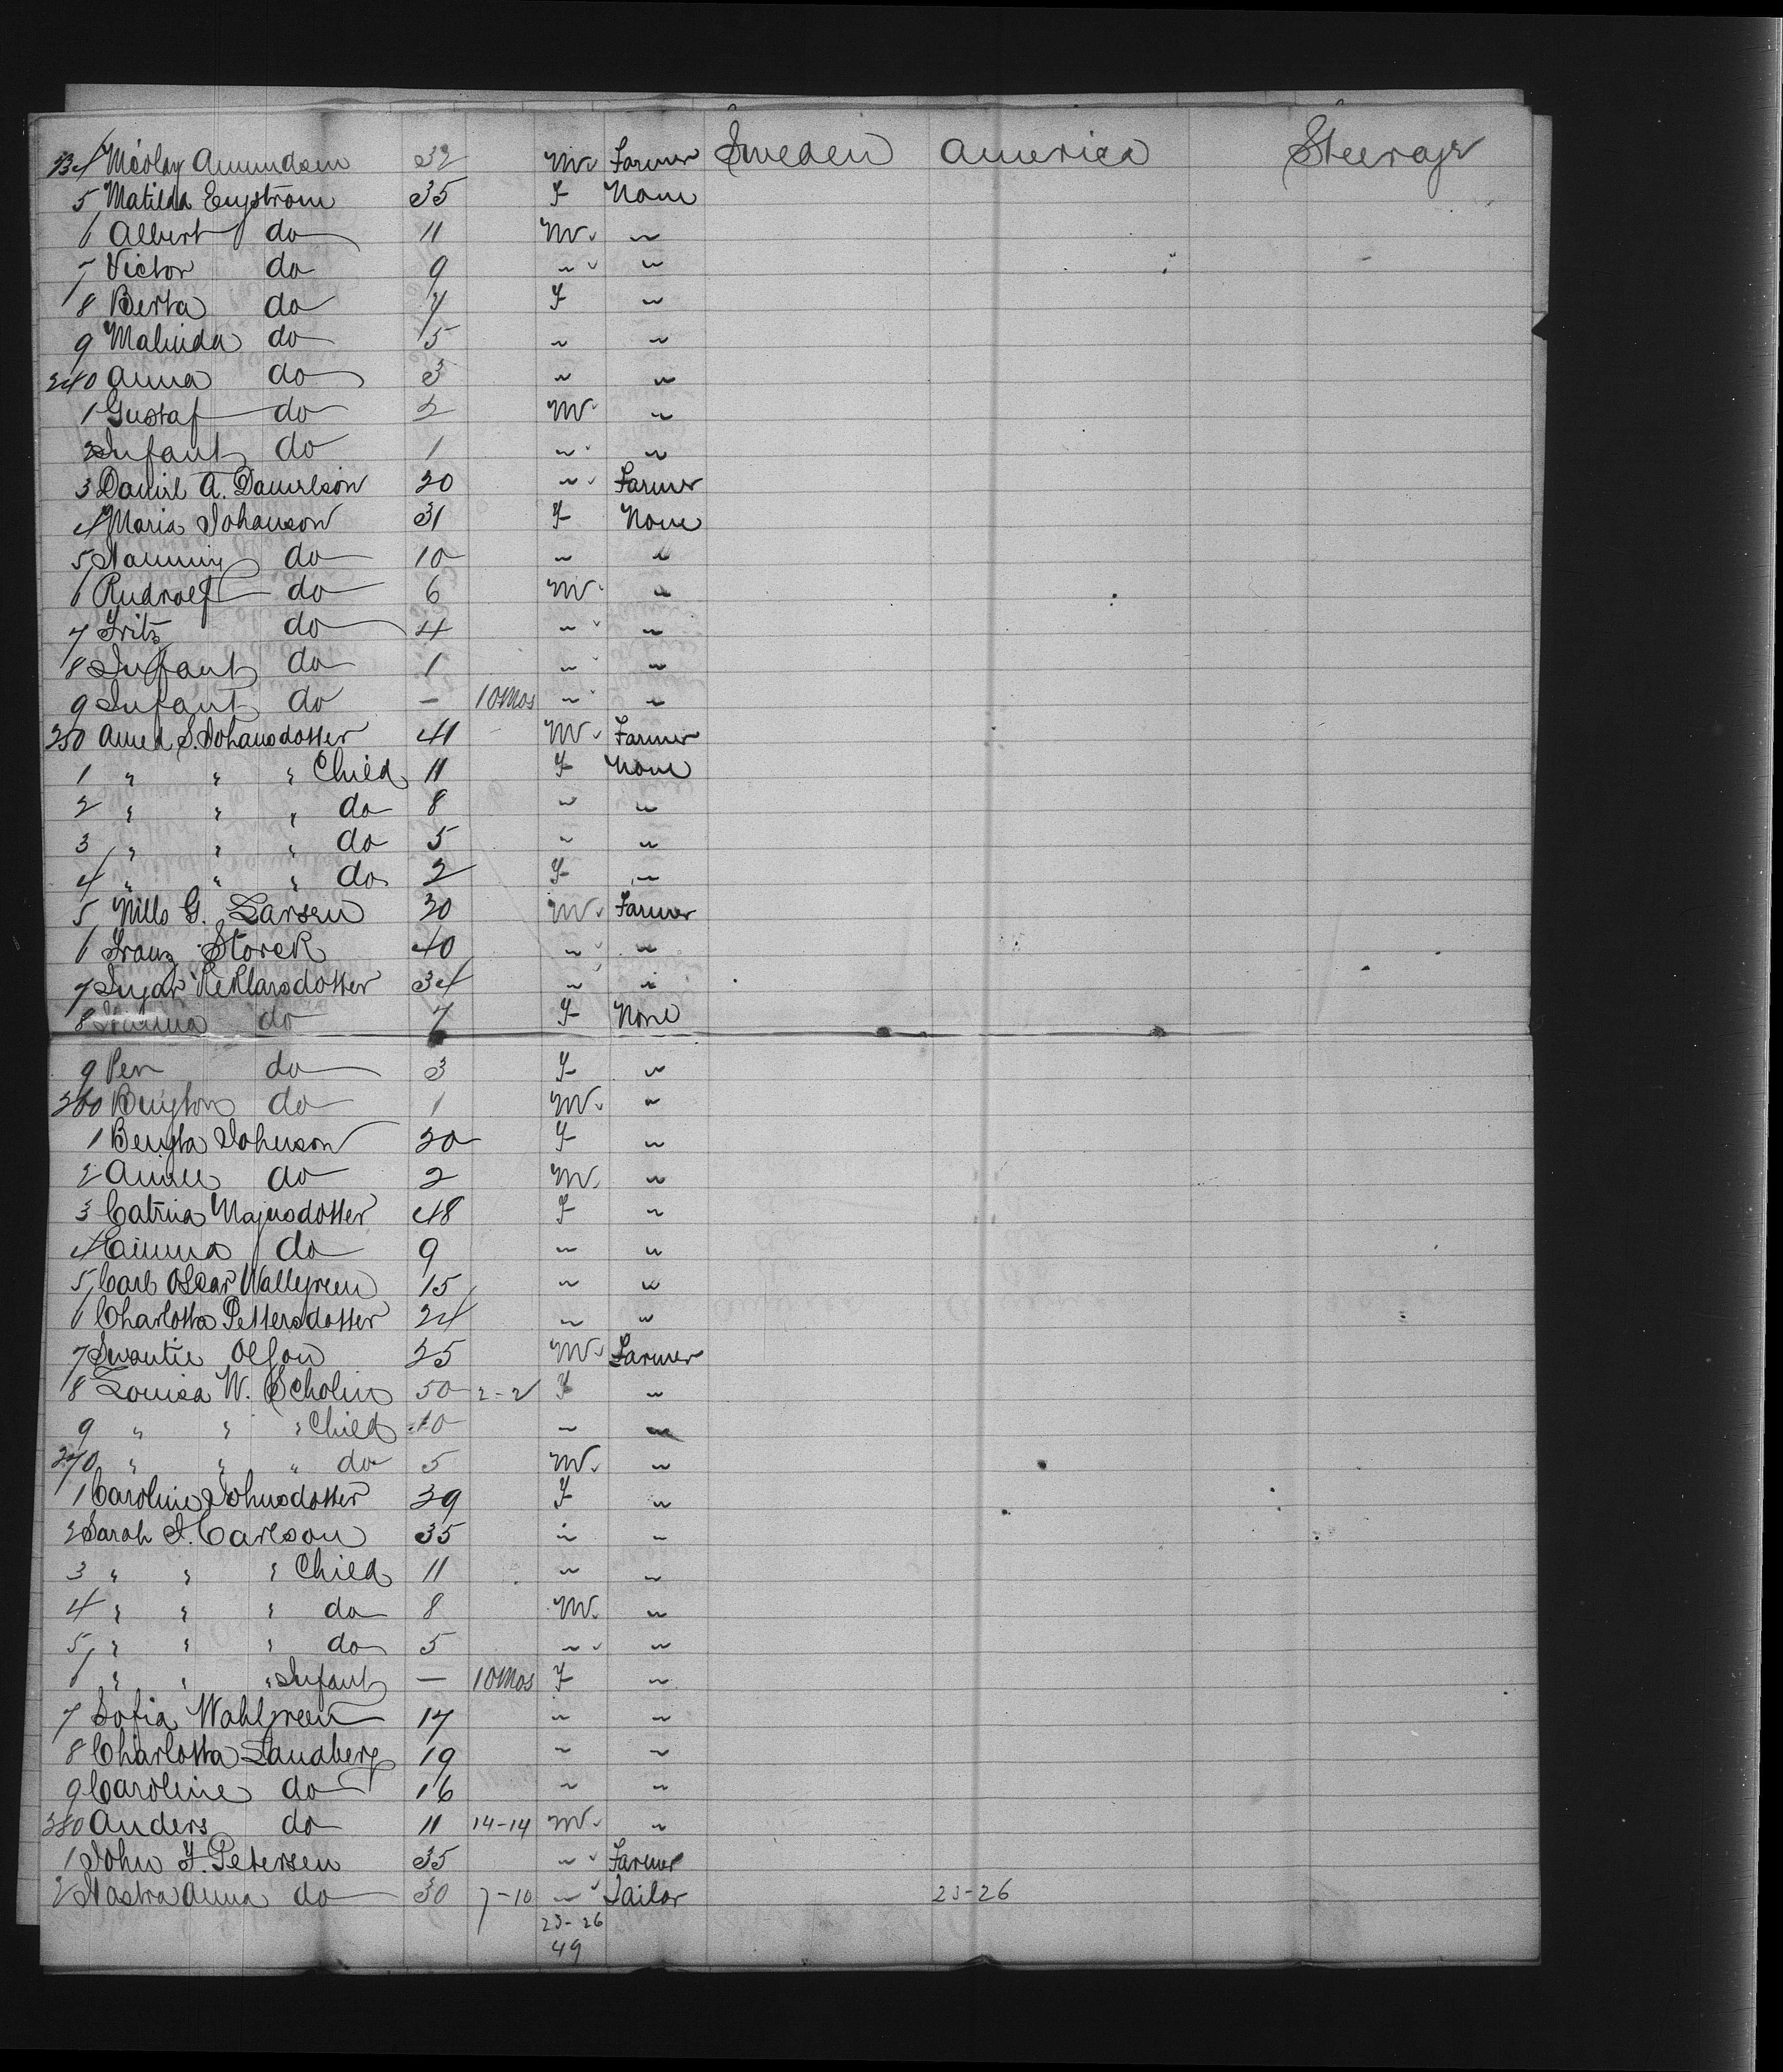 234 Nicolay Amundsen 32 M. Farmer Sweden America Steerage
5 Matilda Engstrom 35 F None
6 Albert do 11 M. "
7 Victor do 9 " "
8 Berta do 7 F "
9 Malinda do 5 " "
240 Anna do 3 " "
1 Gustaf do 2 M "
2 Infant do 1 " "
3 Daniel A. Danielson 20 " Farmer
4 Maria Johanson 31 F None
5 do 10 " "
6 Rudroef do 6 M. "
7 Fritz do 4 " "
8 Infant do 1 " "
9 Infant do — 10 Mos " "
250 S. Johansdotter 41 M. Farmer
1 " " " Child 11 F None
2 " " " do 8 " "
3 " " " do 5 " "
4 " " " do 2 F "
5 Nills G. Larsen 30 M. Farmer
6 Franz Storck 40 " "
7 34 " "
8 do 7 F None
9 Per do 3 F "
260 do 1 M. "
1 Bengta Johnson 20 F "
2 do 2 M. "
3 Catrina Magnsdotter 48 F "
4 do 9 " "
5 Carl Oscar Wallgreen 15 " "
6 Charlotta Pettersdotter 24 " "
7 Swantie Olson 25 M. Farmer
8 Louisa W. Scholin 50 2-2 F "
9 " " " Child 10 " "
270 " " " do 5 M. "
1 Caroline Johnsdotter 39 F "
2 Sarah J. Carlson 35 " "
3 " " " Child 11 " "
4 " " " do 8 M. "
5 " " " do 5 " "
6 " " " Infant — 10 Mos F "
7 Sofia Wahlgreen 17 " "
8 Charlotta Landberg 19 " "
9 Caroline do 16 " "
280 Anders do 11 14-14 M. "
1 John F. Petersen 35 " Farmer
2 Anna do 30 7-10 " Tailor 23-26
23-26
49